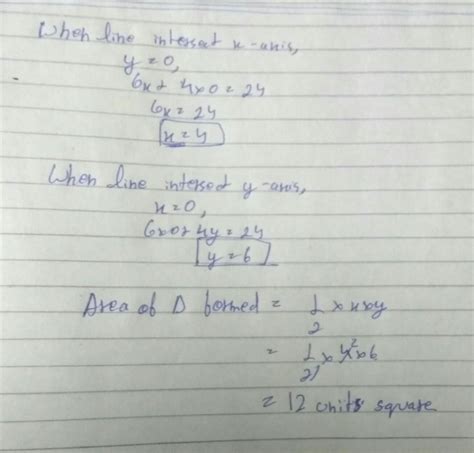 When line intersect x-axis,
y = 0,
6x + 4×0 = 24
6x = 24
x = 4
When line intersect y-axis,
x = 0,
6×0 + 4y = 24
y = 6
Area of Δ formed = 1/2 × x × y
= 1/2 × 4 2 × 6
= 12 units square